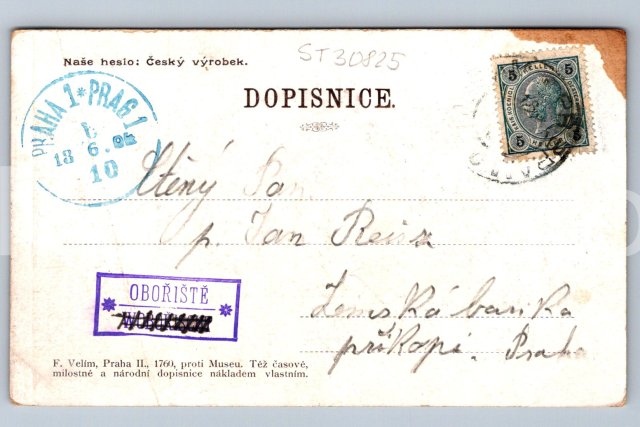 Naše heslo: Český výrobek.
ST30825
DOPISNICE.
PRAHA 1 * PRAG 1
18 6
10
5 5
5
Ctěný Pan
p. Jan Reisz
Zemská banka
příkopi. Praha
OBOŘIŠTĚ
F. Velím, Praha II., 1760, proti Museu. Též časové,
milostné a národní dopisnice nákladem vlastním.